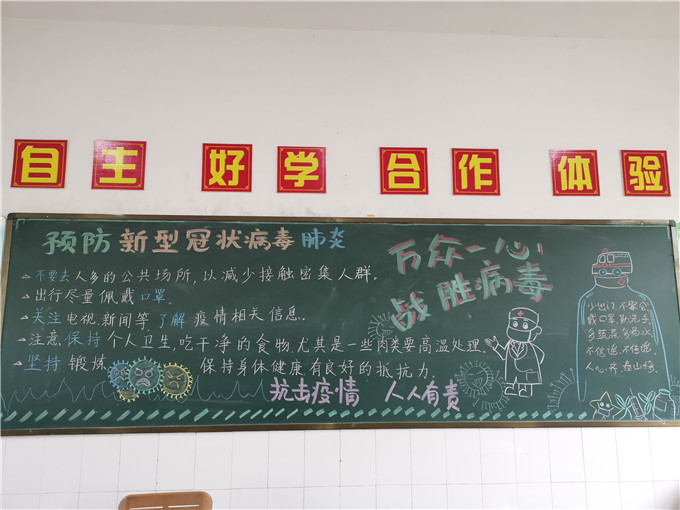 自主 好学 合作 体验
预防新型冠状病毒肺炎
不要去人多的公共场所,以减少接触密集人群。
出行尽量佩戴口罩。
关注电视.新闻等,了解疫情相关信息.
注意保持个人卫生,吃干净的食物尤其是一些肉类要高温处理.
坚持锻炼 保持身体健康有良好的抵抗力.
抗击疫情 人人有责
万众一心,
战胜病毒
少出门,不聚会
戴口罩,勤洗手
多蔬菜,多喝水
不信谣,不传谣
人心齐,泰山移